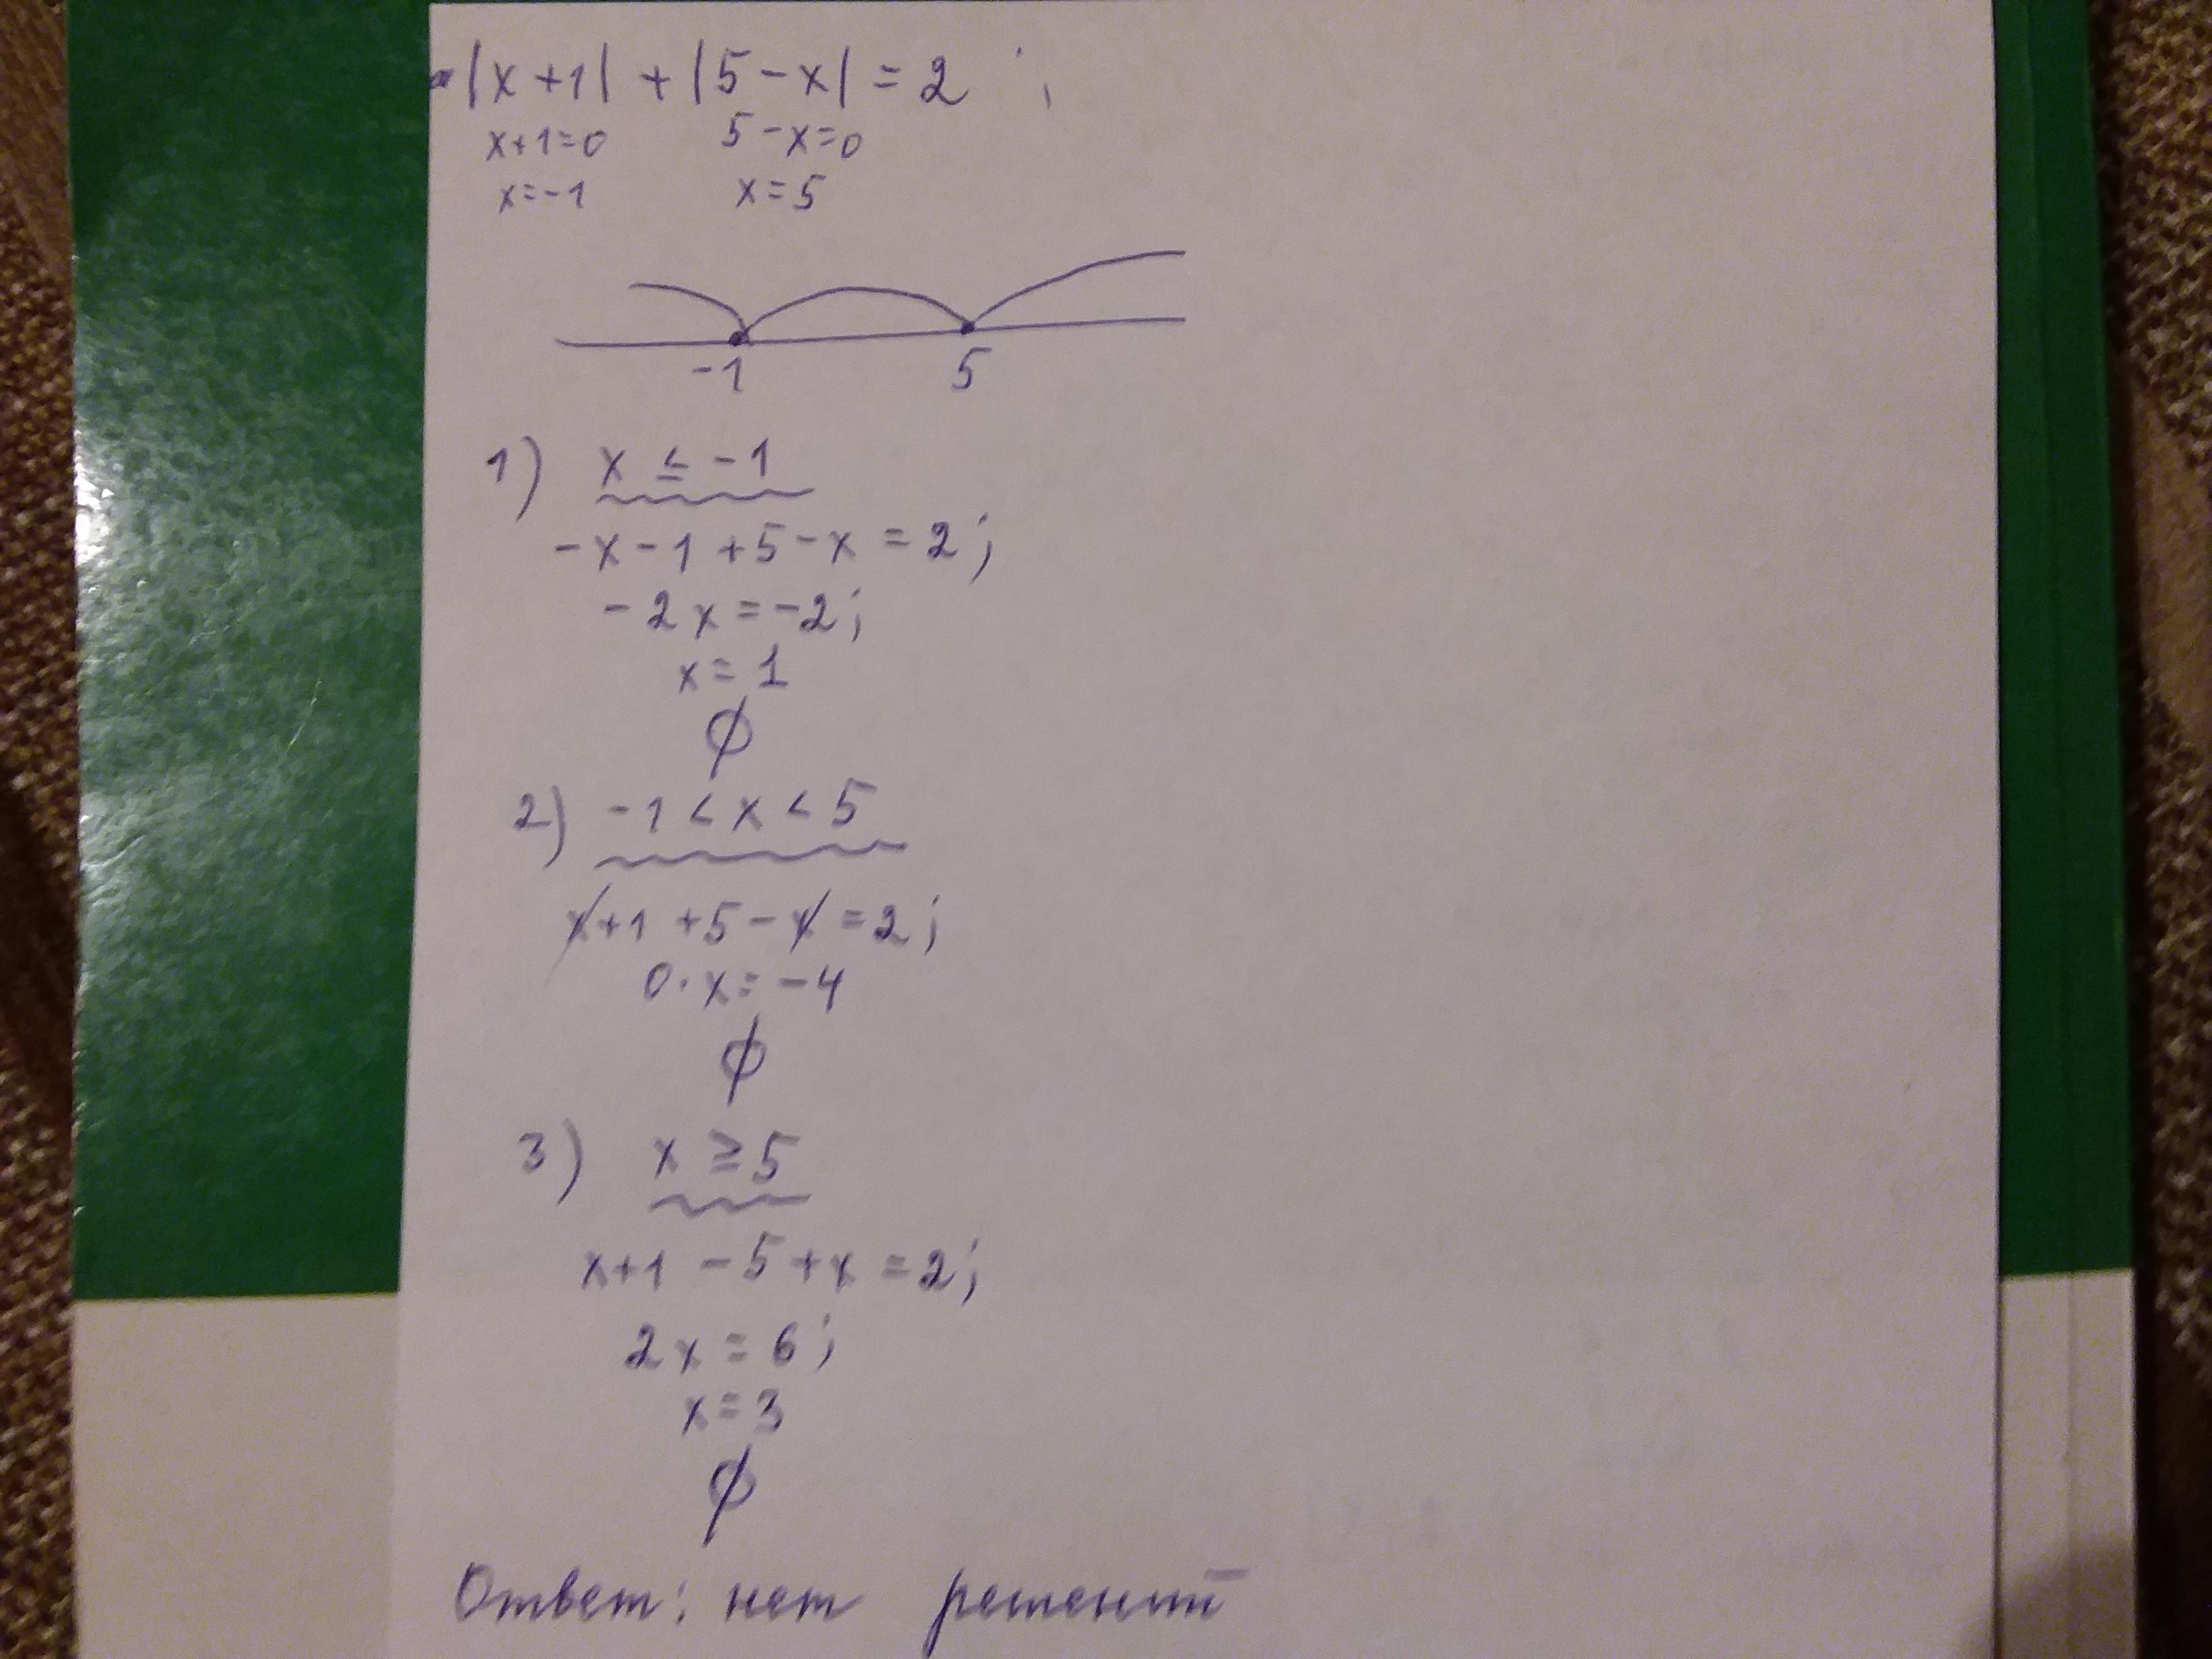 |x+1| + |5-x| = 2 ;
x+1=0 5-x=0
x=-1 x=5
-1 5
1) x ≤ -1
-x-1+5-x = 2;
-2x = -2;
x = 1
∅
2) -1 < x < 5
x+1+5-x = 2;
0·x = -4
∅
3) x ≥ 5
x+1-5+x = 2;
2x = 6;
x = 3
∅
Ответ: нет решений